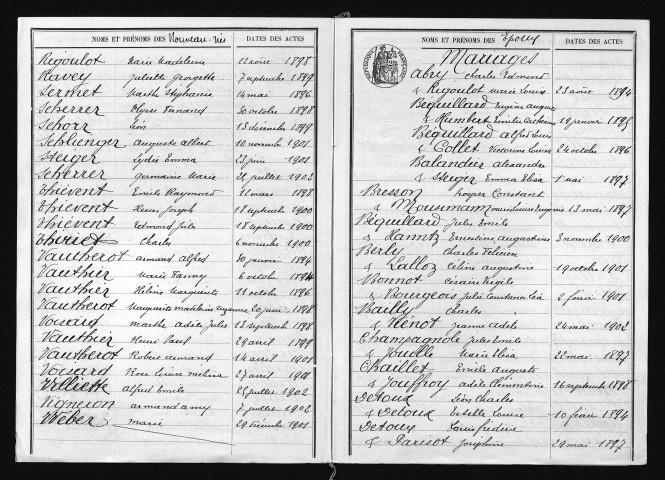 NOMS ET PRÉNOMS DES Nouveau-nés DATES DES ACTES
Rigoulot Marie Madeleine 22 août 1898
Ravey Juliette Georgette 7 septembre 1899
Sermet Marthe Stéphanie 14 mai 1896
Scherrer Elysée Fernand 30 octobre 1898
Schorr Léon 13 décembre 1899
Schlienger auguste albert 10 novembre 1901
Steiger Lydie Emma 23 juin 1901
Scherrer germaine Marie 21 juillet 1902
Thiévent Emile Raymond 12 mars 1898
Thiévent Henri Joseph 1 septembre 1900
Thiévent Edmond Jules 18 septembre 1900
Thiriet Charles 6 novembre 1900
Vautherot armand alfred 30 janvier 1894
Vauthier Marie Fanny 6 octobre 1894
Vauthier Hélène Marguerite 11 octobre 1896
Vautherot Marguerite Mathilde Suzanne 20 juin 1898
Voisard marthe adèle Julie 13 septembre 1898
Vauthier Henri Paul 29 avril 1899
Vautherot Robert armand 14 avril 1901
Vouard Rose Louise 27 avril 1901
Villiette alfred Emile 25 juillet 1902
Vigneron armand 7 juillet 1902
Weber marie 29 décembre 1901
NOMS ET PRÉNOMS DES Epoux DATES DES ACTES
Mariages
Abry Charles Edmond
& Rigoulot Marie Louise 23 août 1894
Béquillard Eugène
& Humbert Emélie 19 janvier 1895
Béquillard alfred Louis
& Collet Victorine Louise 24 octobre 1896
Balandier alexandre
& Steiger Emma Elisa 1 mai 1897
Bresson Prosper Constant
& Mousimann 13 mai 1897
Béquillard Jules Emile
& Hanntz Ernestine augustine 3 novembre 1900
Berly Charles Félicien
& Lalloz Céline augustine 19 octobre 1901
Bonnot Césaire Virgile
& Bourgeois Julie Constance Léa 2 février 1901
Bailly Charles
& Hénot Jeanne adèle 24 mai 1902
Champagnole Jules Emile
& Jouille Marie Elisa 22 mai 1897
Chaillet Emile auguste
& Jouffroy adèle Clémentine 16 septembre 1898
Detoux Léon Charles
& Detoux Estelle Louise 10 février 1894
Detoux Louis frédéric
& Parisot Joséphine 29 mai 1897